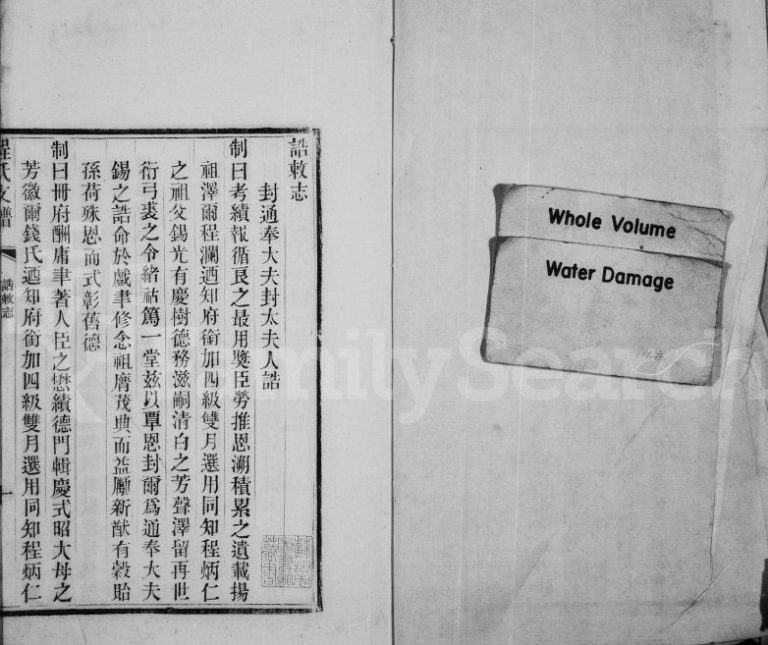 誥敕志
封通奉大夫封太夫人誥
制曰考績報循良之最用奬臣勞推恩溯積累之遺載揚
祖澤爾程瀾廼知府銜加四級雙月選用同知程炳仁
之祖父錫光有慶樹德務滋嗣清白之芳聲澤留再世
衍弓裘之令緒祜篤一堂玆以覃恩封爾爲通奉大夫
錫之誥命於戲聿修念祖膺茂典而益勵新猷有穀貽
孫荷殊恩而式彰舊德
制曰冊府酬庸聿著人臣之懋績德門輯慶式昭大母之
芳徽爾錢氏廼知府銜加四級雙月選用同知程炳仁
程氏支譜
誥敕志
一
Whole Volume
Water Damage
FamilySearch